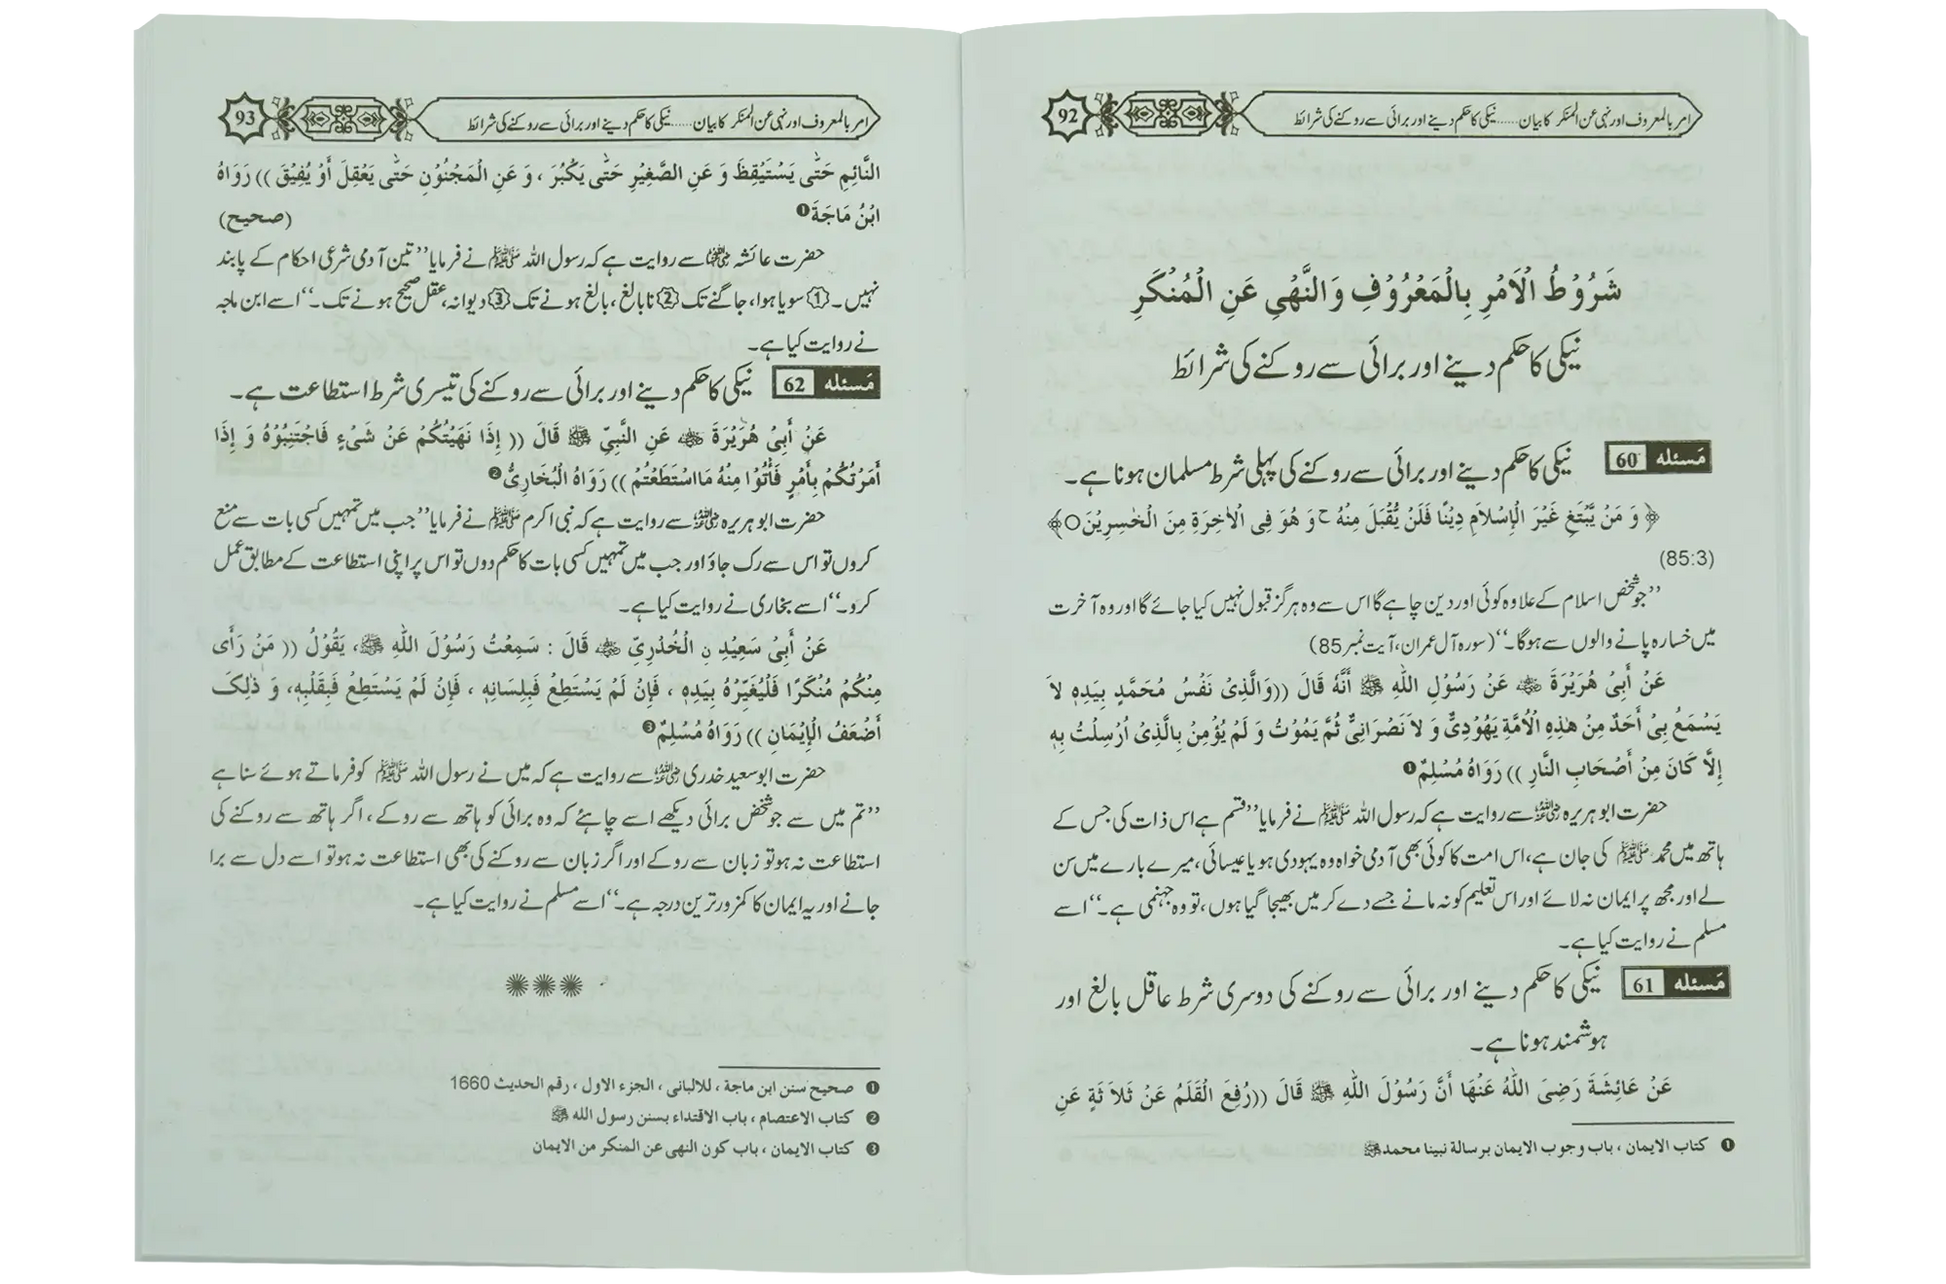 92 امر بالمعروف اور نہی عن المنکر کا بیان......نیکی کا حکم دینے اور برائی سے روکنے کی شرائط
شَرُوْطُ الْاَمْرِ بِالْمَعْرُوْفِ وَالنَّهْيِ عَنِ الْمُنْكَرِ
نیکی کا حکم دینے اور برائی سے روکنے کی شرائط
مَسئله 60 نیکی کا حکم دینے اور برائی سے روکنے کی پہلی شرط مسلمان ہونا ہے۔
﴿ وَ مَنْ يَّبْتَغِ غَيْرَ الْإِسْلاَمِ دِيْنًا فَلَنْ يُّقْبَلَ مِنْهُ ج وَ هُوَ فِى الْاٰخِرَةِ مِنَ الْخٰسِرِيْنَ○﴾
(85:3)
’’جو شخص اسلام کے علاوہ کوئی اور دین چاہے گا اس سے وہ ہرگز قبول نہیں کیا جائے گا اور وہ آخرت
میں خسارہ پانے والوں سے ہوگا۔‘‘ (سورہ آل عمران، آیت نمبر 85)
عَنْ أَبِىْ هُرَيْرَةَ ﷺ عَنْ رَسُوْلِ اللّٰهِ ﷺ أَنَّهُ قَالَ ((وَالَّذِىْ نَفْسُ مُحَمَّدٍ بِيَدِهِ لاَ
يَسْمَعُ بِىْ أَحَدٌ مِنْ هٰذِهِ الْاُمَّةِ يَهُوْدِىٌّ وَ لاَ نَصْرَانِىٌّ ثُمَّ يَمُوْتُ وَ لَمْ يُؤْمِنْ بِالَّذِىْ اُرْسِلْتُ بِهِ
إِلَّا كَانَ مِنْ أَصْحَابِ النَّارِ )) رَوَاهُ مُسْلِمٌ❶
حضرت ابو ہریرہ رضی اللہ عنہ سے روایت ہے کہ رسول اللہ ﷺ نے فرمایا ’’قسم ہے اس ذات کی جس کے
ہاتھ میں محمد ﷺ کی جان ہے، اس امت کا کوئی بھی آدمی خواہ وہ یہودی ہو یا عیسائی، میرے بارے میں سن
لے اور مجھ پر ایمان نہ لائے اور اس تعلیم کو نہ مانے جسے دے کر میں بھیجا گیا ہوں، تو وہ جہنمی ہے۔‘‘ اسے
مسلم نے روایت کیا ہے۔
مَسئله 61 نیکی کا حکم دینے اور برائی سے روکنے کی دوسری شرط عاقل بالغ اور
ہوشمند ہونا ہے۔
عَنْ عَائِشَةَ رَضِىَ اللّٰهُ عَنْهَا أَنَّ رَسُوْلَ اللّٰهِ ﷺ قَالَ ((رُفِعَ الْقَلَمُ عَنْ ثَلاَ ثَةٍ عَنِ
❶ كتاب الايمان ، باب وجوب الايمان برسالة نبينا محمد ﷺ
93 امر بالمعروف اور نہی عن المنکر کا بیان......نیکی کا حکم دینے اور برائی سے روکنے کی شرائط
النَّائِمِ حَتّٰى يَسْتَيْقِظَ وَ عَنِ الصَّغِيْرِ حَتّٰى يَكْبُرَ ، وَ عَنِ الْمَجْنُوْنِ حَتّٰى يَعْقِلَ أَوْ يُفِيْقَ )) رَوَاهُ
ابْنُ مَاجَةَ❶ (صحيح)
حضرت عائشہ رضی اللہ عنہا سے روایت ہے کہ رسول اللہ ﷺ نے فرمایا ’’تین آدمی شرعی احکام کے پابند
نہیں۔ 1 سویا ہوا، جاگنے تک 2 نابالغ، بالغ ہونے تک 3 دیوانہ، عقل صحیح ہونے تک۔‘‘ اسے ابن ماجہ
نے روایت کیا ہے۔
مَسئله 62 نیکی کا حکم دینے اور برائی سے روکنے کی تیسری شرط استطاعت ہے۔
عَنْ أَبِىْ هُرَيْرَةَ ﷺ عَنِ النَّبِىِّ ﷺ قَالَ (( إِذَا نَهَيْتُكُمْ عَنْ شَىْءٍ فَاجْتَنِبُوْهُ وَ إِذَا
أَمَرْتُكُمْ بِأَمْرٍ فَأْتُوْا مِنْهُ مَااسْتَطَعْتُمْ )) رَوَاهُ الْبُخَارِىُّ❷
حضرت ابو ہریرہ رضی اللہ عنہ سے روایت ہے کہ نبی اکرم ﷺ نے فرمایا ’’جب میں تمہیں کسی بات سے منع
کروں تو اس سے رک جاؤ اور جب میں تمہیں کسی بات کا حکم دوں تو اس پر اپنی استطاعت کے مطابق عمل
کرو۔‘‘ اسے بخاری نے روایت کیا ہے۔
عَنْ أَبِىْ سَعِيْدِ نِ الْخُدْرِىِّ ﷺ قَالَ : سَمِعْتُ رَسُوْلَ اللّٰهِ ﷺ، يَقُوْلُ (( مَنْ رَأَى
مِنْكُمْ مُنْكَرًا فَلْيُغَيِّرْهُ بِيَدِهِ ، فَإِنْ لَمْ يَسْتَطِعْ فَبِلِسَانِهِ ، فَإِنْ لَمْ يَسْتَطِعْ فَبِقَلْبِهِ، وَ ذٰلِكَ
أَضْعَفُ الْإِيْمَانِ )) رَوَاهُ مُسْلِمٌ❸
حضرت ابو سعید خدری رضی اللہ عنہ سے روایت ہے کہ میں نے رسول اللہ ﷺ کو فرماتے ہوئے سنا ہے
’’تم میں سے جو شخص برائی دیکھے اسے چاہئے کہ وہ برائی کو ہاتھ سے روکے، اگر ہاتھ سے روکنے کی
استطاعت نہ ہو تو زبان سے روکے اور اگر زبان سے روکنے کی بھی استطاعت نہ ہو تو اسے دل سے برا
جانے اور یہ ایمان کا کمزور ترین درجہ ہے۔‘‘ اسے مسلم نے روایت کیا ہے۔
❶ صحيح سنن ابن ماجة ، للالبانى ، الجزء الاول ، رقم الحديث 1660
❷ كتاب الاعتصام ، باب الاقتداء بسنن رسول الله ﷺ
❸ كتاب الايمان ، باب كون النهى عن المنكر من الايمان